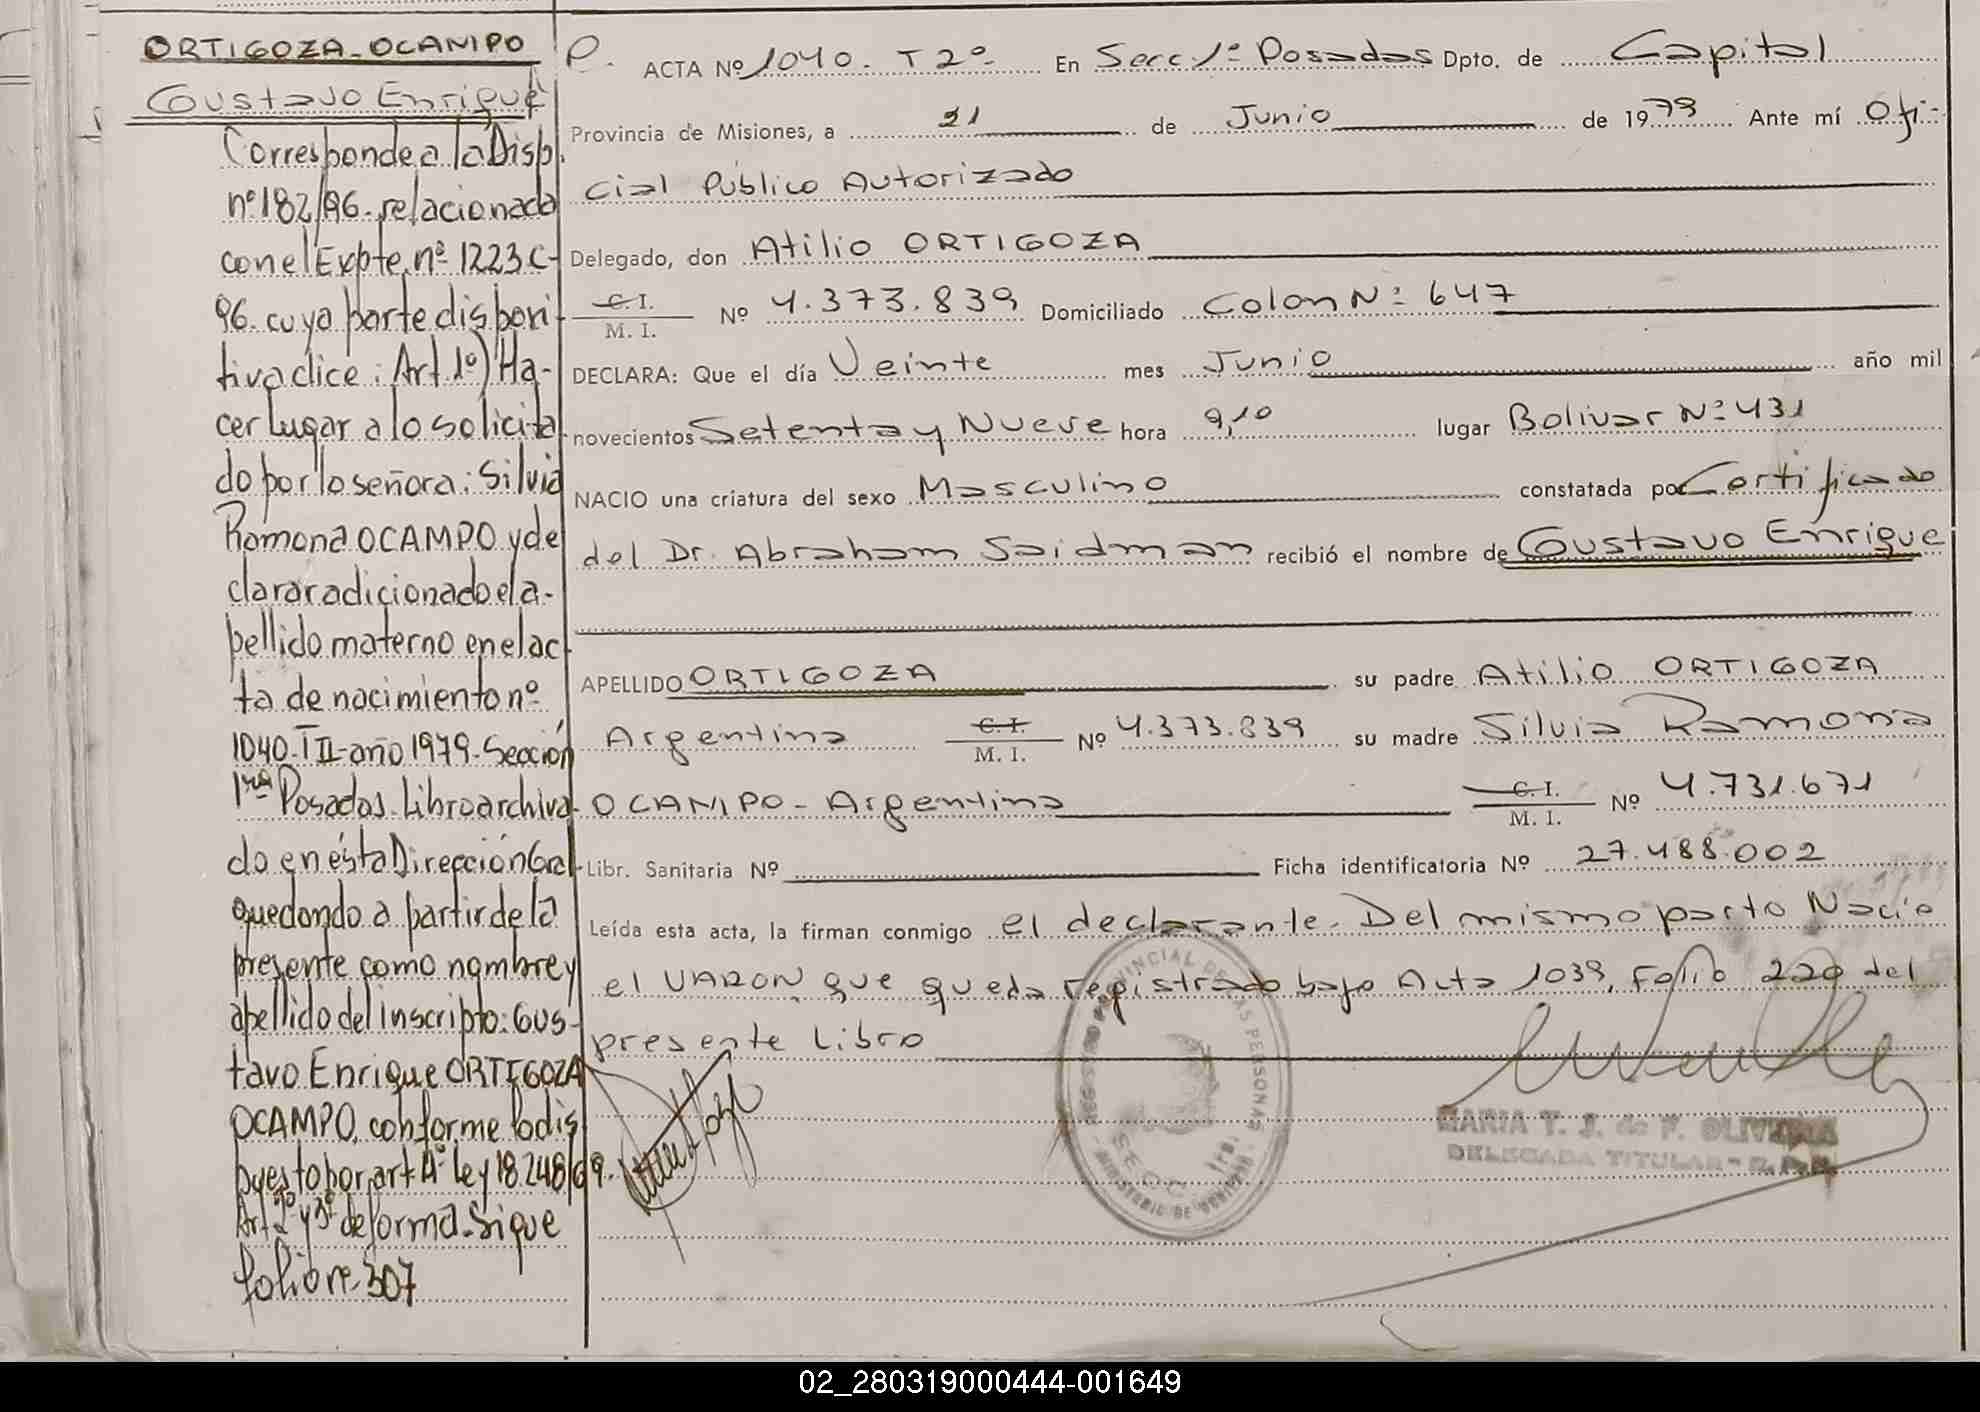 ORTIGOZA-OCAMPO
Gustavo Enrique
Corresponde a la Disp.
nº 182/96. relacionada
con el Expte. nº 1223 C-
96. cuya parte disposi-
tiva dice: Art 1º) Ha-
cer lugar a lo solicita-
do por lo señora: Silvia
Ramona OCAMPO y de
clarar adicionado el a-
pellido materno en el ac-
ta de nacimiento nº
1040-T II-año 1979-Sección
1ra Posadas. Libro archiva-
do en ésta Dirección Gral-
quedando a partir de la
presente como nombre y
apellido del inscripto: Gus-
tavo Enrique ORTIGOZA
OCAMPO, conforme lo dis
puesto por art 4º Ley 18.248/69.
Art 2º y 3º de forma. Sigue
folio nº 307
P. ACTA Nº 1040. T 2º- En Secc 1ª Posadas Dpto. de Capital
Provincia de Misiones, a 21 de Junio de 1979 Ante mí Ofi-
cial Público Autorizado
Delegado, don Atilio ORTIGOZA
C. I.
M. I. Nº 4.373.839 Domiciliado Colon Nº 647
DECLARA: Que el día Veinte mes Junio año mil
novecientos Setenta y Nueve hora 9,10 lugar Bolivar Nº 431
NACIO una criatura del sexo Masculino constatada por Certificado
del Dr. Abraham Saidman recibió el nombre de Gustavo Enrique
APELLIDO ORTIGOZA su padre Atilio ORTIGOZA
Argentino C. I. M. I. Nº 4.373.839 su madre Silvia Ramona
OCAMPO - Argentina C. I. M. I. Nº 4.731.671
Libr. Sanitaria Nº Ficha identificatoria Nº 27.488.002
Leída esta acta, la firman conmigo el declarante. Del mismo parto Nació
el VARON que queda registrado bajo Acta 1039, Folio 220 del
presente Libro
MARIA T. J. de F. OLIVEIRA
DELEGADA TITULAR - R.P.P.
02_280319000444-001649